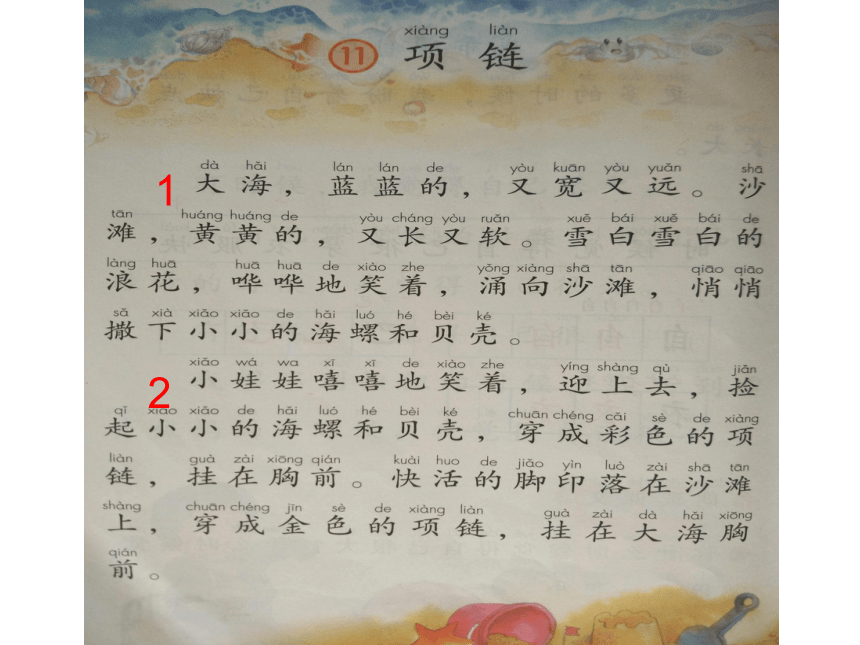 xiàng liàn
11 项链
dà hǎi lán lán de yòu kuān yòu yuǎn shā
1 大海，蓝蓝的，又宽又远。沙
tān huáng huáng de yòu cháng yòu ruǎn xuě bái xuě bái de
滩，黄黄的，又长又软。雪白雪白的
làng huā huā huā de xiào zhe yǒng xiàng shā tān qiāo qiāo
浪花，哗哗地笑着，涌向沙滩，悄悄
sǎ xià xiǎo xiǎo de hǎi luó hé bèi ké
撒下小小的海螺和贝壳。
xiǎo wá wa xī xī de xiào zhe yíng shàng qù jiǎn
2 小娃娃嘻嘻地笑着，迎上去，捡
qǐ xiǎo xiǎo de hǎi luó hé bèi ké chuān chéng cǎi sè de xiàng
起小小的海螺和贝壳，穿成彩色的项
liàn guà zài xiōng qián kuài huo de jiǎo yìn luò zài shā tān
链，挂在胸前。快活的脚印落在沙滩
shàng chuān chéng jīn sè de xiàng liàn guà zài dà hǎi xiōng
上，穿成金色的项链，挂在大海胸
qián
前。